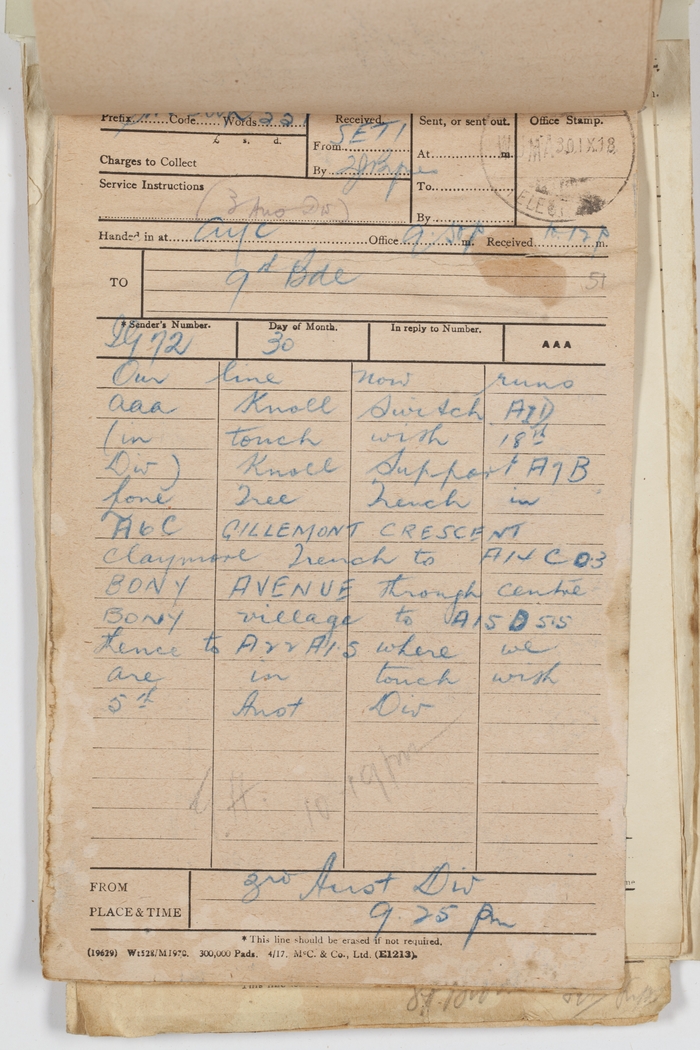 Prefix Code Words 221
£ s. d.
Charges to Collect
Received. SET1
From
By
Sent, or sent out.
At m.
To
By
Office Stamp.
30.IX.18
Service Instructions
(3 Aus Div)
Handed in at Office 9 m. Received 10.12 p m.
TO 9th Bde
51
*Sender's Number. Day of Month. In reply to Number. AAA
30
Our line now runs
aaa Knoll Switch A1D
(in touch with 18th
Div) Knoll Support A7B
Lone Tree Trench in
A6C GILLEMONT CRESCENT
Claymore Trench to A14C03
BONY AVENUE through centre
BONY village to A15D55
thence to A22A1.5 where we
are in touch with
5th Aust Div
10.19 pm
FROM 3rd Aust Div
PLACE & TIME 9.25 pm
* This line should be erased if not required.
(19629) Wt528/M1970. 300,000 Pads. 4/17. McC. & Co., Ltd. (E1213).